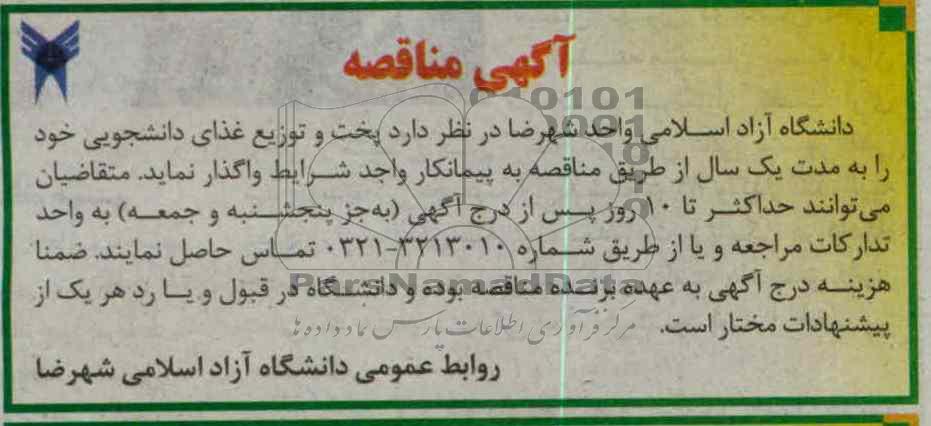 آگهی مناقصه
دانشگاه آزاد اسلامی واحد شهرضا در نظر دارد پخت و توزیع غذای دانشجویی خود
را به مدت یک سال از طریق مناقصه به پیمانکار واجد شرایط واگذار نماید. متقاضیان
می‌توانند حداکثر تا ۱۰ روز پس از درج آگهی (به‌جز پنجشنبه و جمعه) به واحد
تدارکات مراجعه و یا از طریق شماره ۳۲۱۳۰۱۰-۰۳۲۱ تماس حاصل نمایند. ضمنا
هزینه درج آگهی به عهده برنده مناقصه بوده و دانشگاه در قبول و یا رد هر یک از
پیشنهادات مختار است.
روابط عمومی دانشگاه آزاد اسلامی شهرضا
ParsNamadData
مرکز فرآوری اطلاعات پارس نماد داده ها